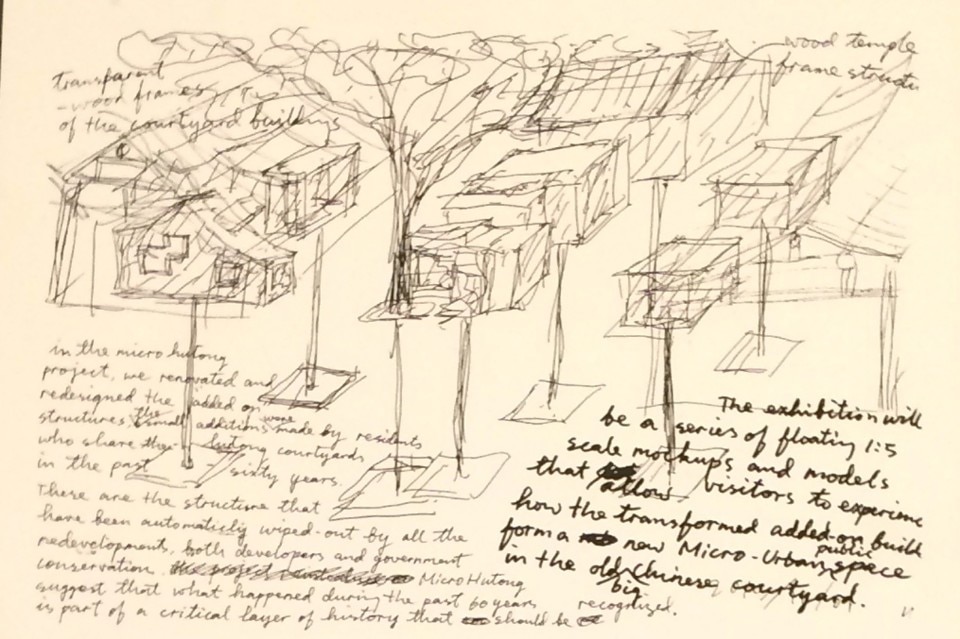 transparent
-wood frames
of the courtyard buildings
wood temple
frame structu
in the micro hutong
project, we renovated and
redesigned the added on
structures. the small additions were made by residents
who share the hutong courtyards
in the past sixty years.
These are the structure that
have been automaticly wiped-out by all the
redevelopments, both developers and government
conservation. MicroHutong
suggest that what happened during the past 60 years
is part of a critical layer of history that should be recognized.
The exhibition will
be a series of floating 1:5
scale mockups and models
that allow visitors to experienc
how the transformed added-on build
form a new Micro-Urban public space
in the old big Chinese courtyard.